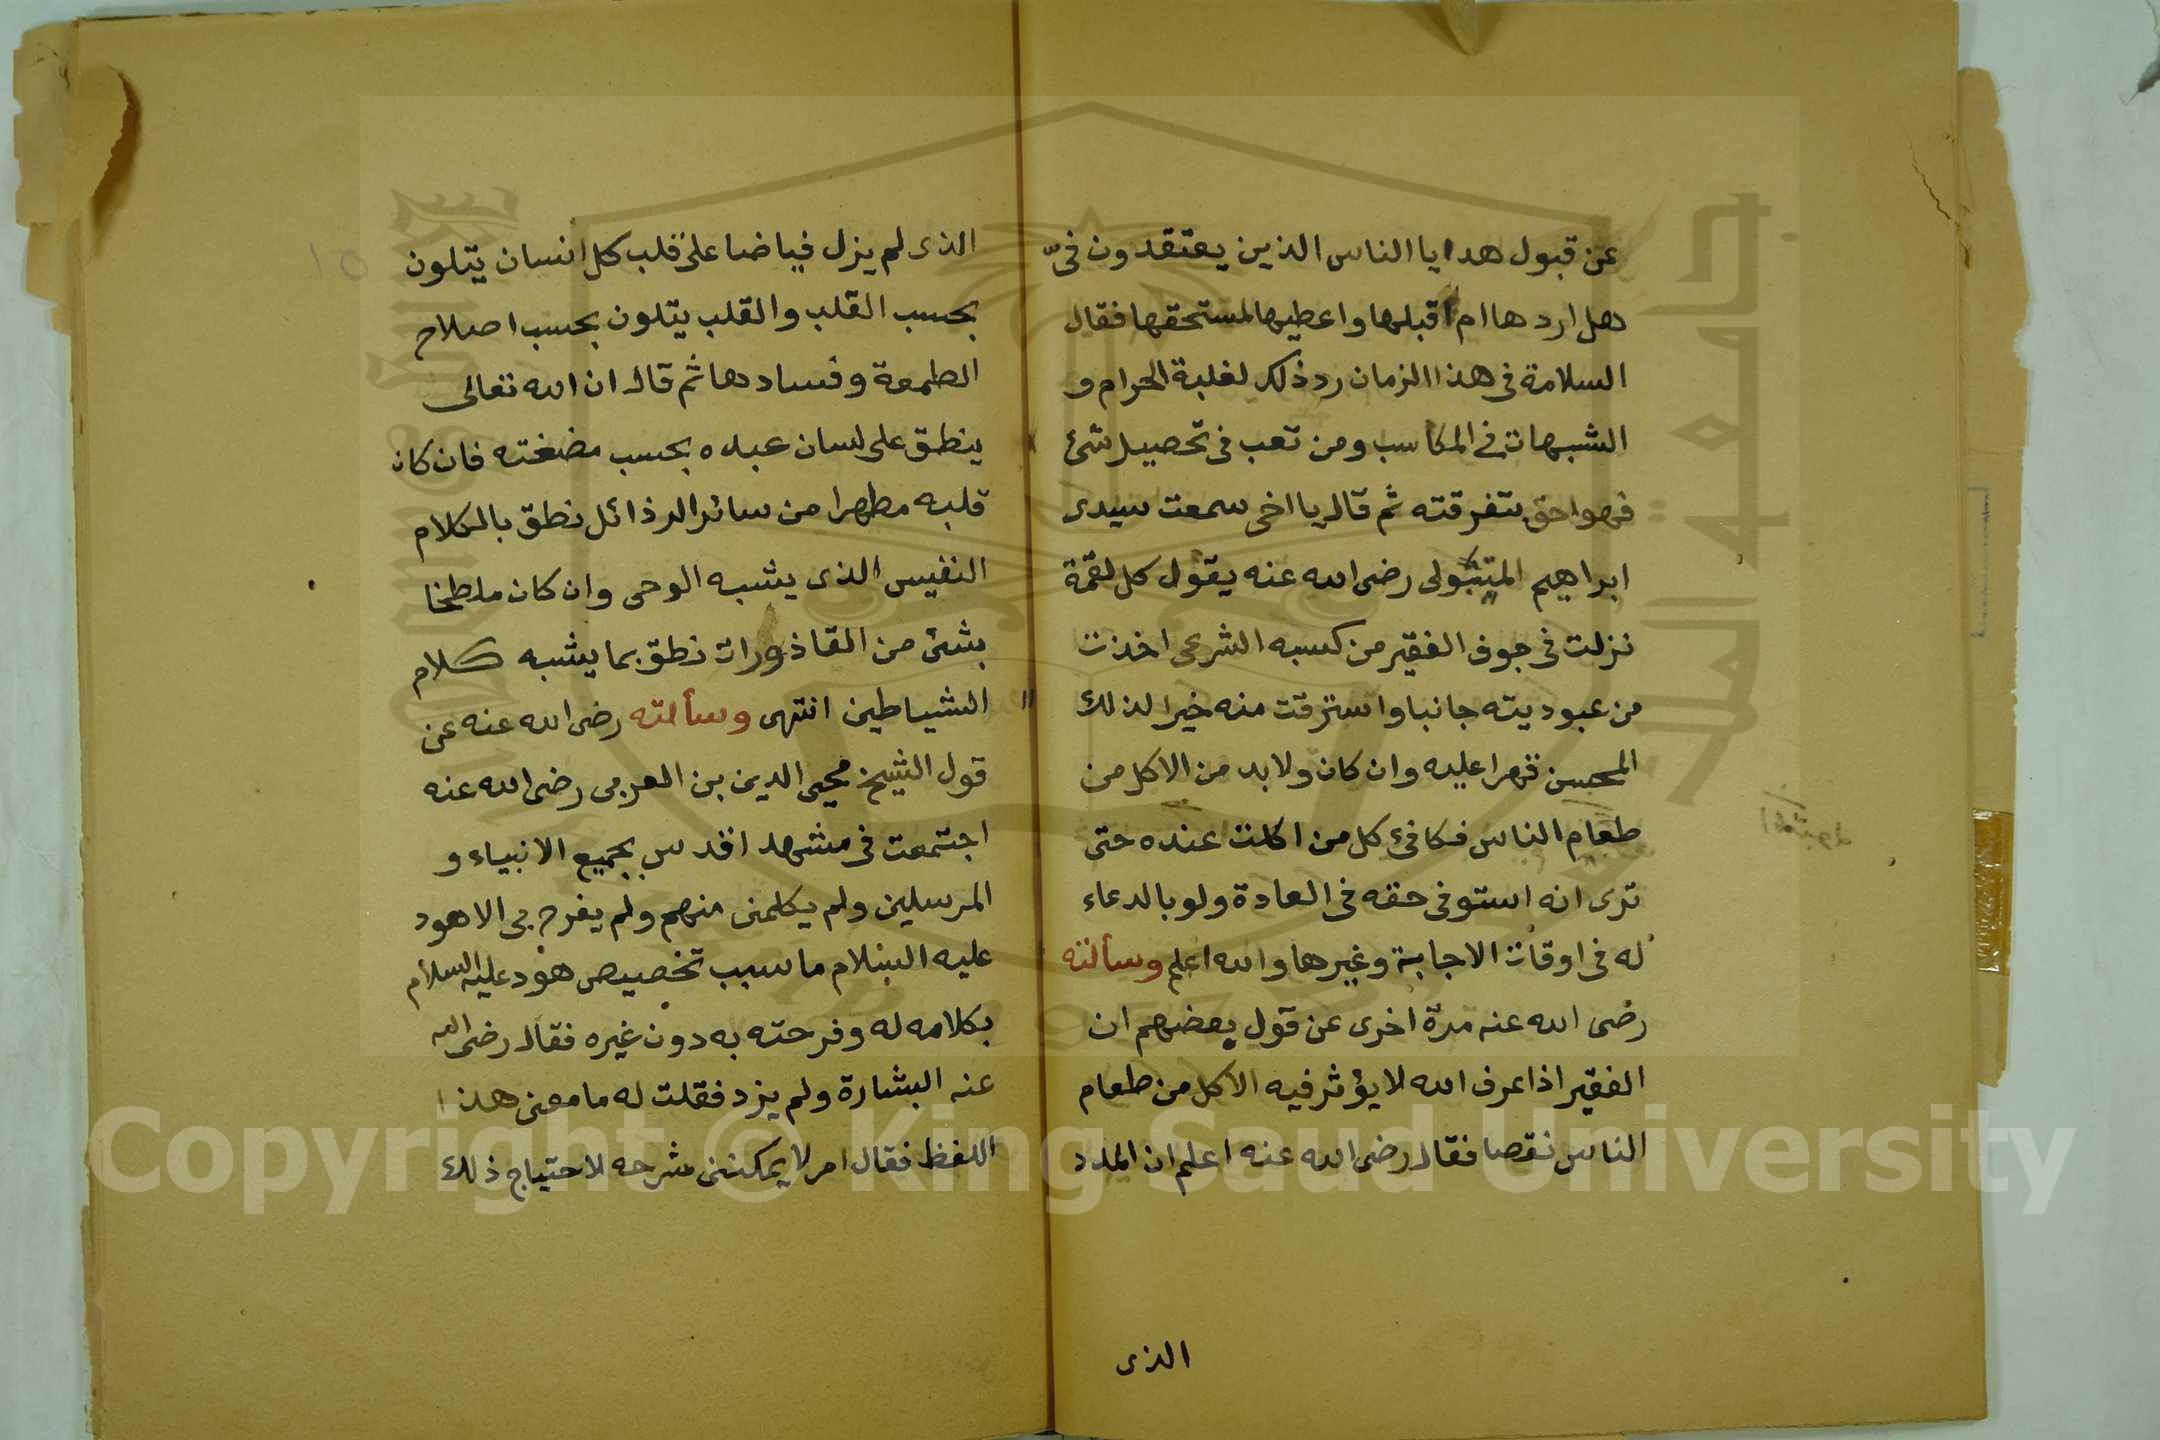 عن قبول هدايا الناس الذين يعتقدون فيّ
هل اردها ام اقبلها واعطيها لمستحقها فقال
السلامة فى هذا الزمان رد ذلك لغلبة الحرام و
الشبهات فى المكاسب ومن تعب فى تحصيل شئ
فهو احق بتفرقته ثم قال يا اخى سمعت سيدى
ابراهيم المتبولى رضى الله عنه يقول كل لقمة
نزلت فى جوف الفقير من كسبه الشرعى اخذت
من عبوديته جانبا واسترقت منه خيرا لذلك
المحسن قهرا عليه وان كان ولابد من الاكل من
طعام الناس فكافئ كل من اكلت عنده حتى
ترى انه استوفى حقه فى العادة ولو بالدعاء
له فى اوقات الاجابة وغيرها والله اعلم وسألته
رضى الله عنه مرة اخرى عن قول بعضهم ان
الفقير اذا عرف الله لا يؤثر فيه الاكل من طعام
الناس نقصا فقال رضى الله عنه اعلم ان المدد
الذى
المتبولى
الذى لم يزل فياضا على قلب كل انسان يتلون
بحسب القلب والقلب يتلون بحسب اصلاح
الطمعة وفسادها ثم قال ان الله تعالى
ينطق على لسان عبده بحسب مضغته فان كان
قلبه مطهرا من سائر الرذائل نطق بالكلام
النفيس الذى يشبه الوحى وان كان ملطخا
بشئ من القاذورات نطق بما يشبه كلام
الشياطين انتهى وسألته رضى الله عنه عن
قول الشيخ محيى الدين بن العربى رضى الله عنه
اجتمعت فى مشهد اقدس بجميع الانبياء و
المرسلين ولم يكلمنى منهم ولم يفرح بى الا هود
عليه السلام ما سبب تخصيص هود عليه السلام
بكلامه له وفرحته به دون غيره فقال رضى الله
عنه البشارة ولم يزد فقلت له ما معنى هذا
اللفظ فقال امر لا يمكننى شرحه لاحتياج ذلك
١٥
جامعة الملك سعود
King Saud University
1957
Copyright © King Saud University